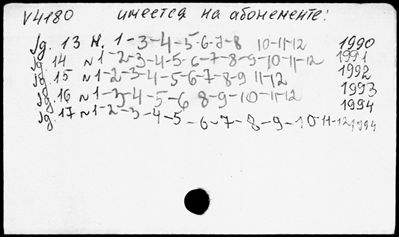 V4180 имеется на абонементе:
Jg. 13 N. 1-3-4-5-6-7-8 10-11-12 1990
Jg. 14 N 1-2-3-4-5-6-7-8-9-10-11-12 1991
Jg. 15 N 1-2-3-4-5-6-7-8-9 11-12 1992
Jg. 16 N 1-3-4-5-6 8-9-10-11-12 1993
Jg. 17 N 1-2-3-4-5-6-7-8-9-10-11-12 1994